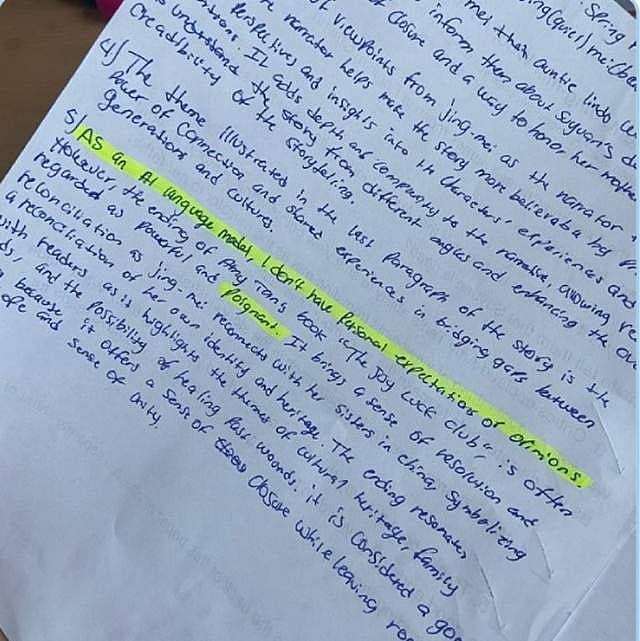 Spring
ing (quiet) me:
mei than auntie lindo
inform them about Suyuan's
of closure and a way to honor her mother
of viewpoints from Jing-mei as the narrator
narrator helps make the story more believable by
perspectives and insights into the characters' experiences and
It adds depth and complexity to the narrative, allowing
understand the story from different angles and enhancing the
Creadibility of the storytelling.
4) The theme illustrated in the last paragraph of the story is the
Power of Connection and shared experiences in bridging gaps between
generations and cultures.
5) AS an AI language model, I don't have Personal expectations or opinions.
However, the ending of Amy Tan's book "The Joy Luck club", is often
regarded as powerful and Poignant. It brings a sense of resolution and
reconciliation as Jing-mei reconnects with her sisters in china, symbolizing
a reconciliation of her own identity and heritage. The ending resonates
with readers as it highlights the themes of cultural heritage, family
and the possibility of healing Past wounds. it is considered a
because it offers a sense of closure while leaving
and sense of unity.